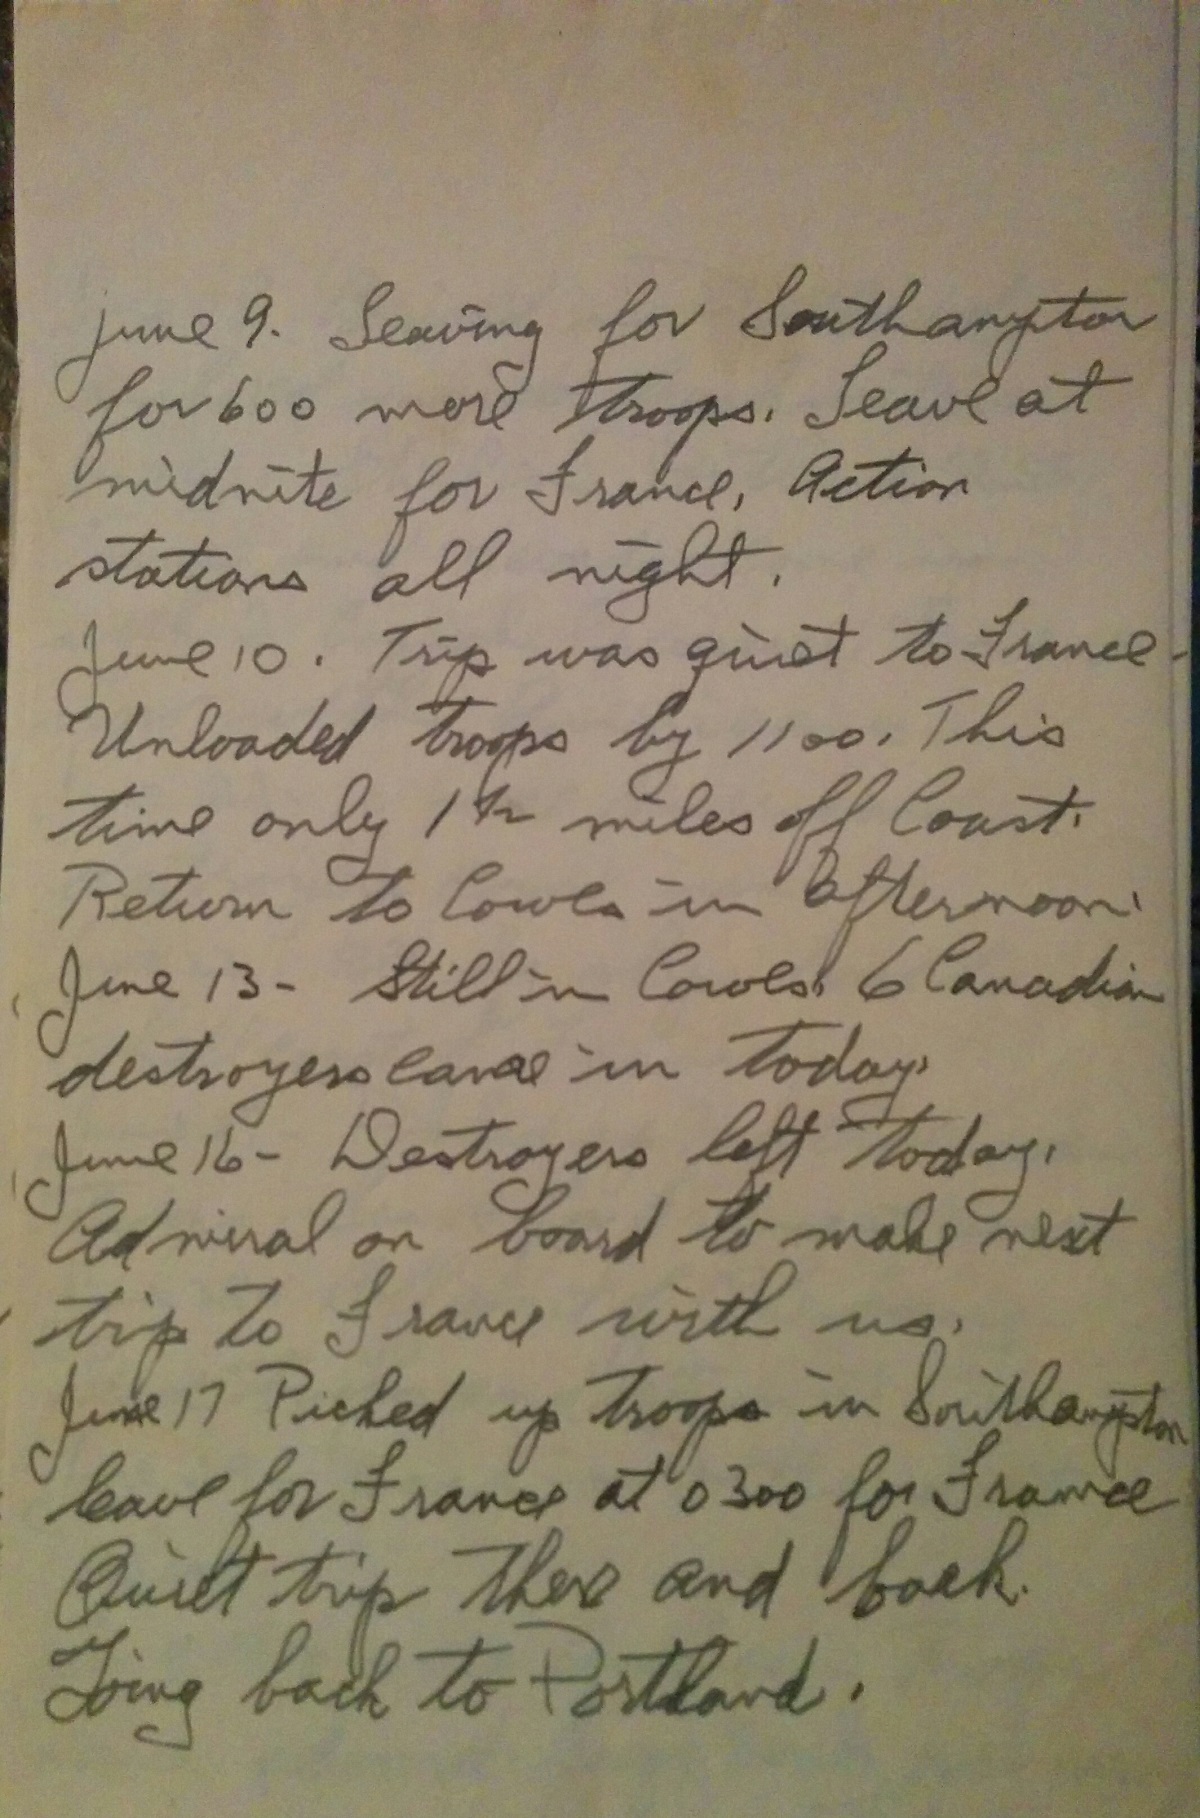 June 9. Leaving for Southampton
for 600 more troops. Leave at
midnite for France, Action
stations all night.
June 10. Trip was quiet to France -
Unloaded troops by 1100. This
time only 1 ½ miles off Coast.
Return to Cowes in afternoon.
June 13 - Still in Cowes. 6 Canadian
destroyers came in today.
June 16 - Destroyers left today.
Admiral on board to make next
trip to France with us.
June 17 Picked up troops in Southampton
leave for France at 0300 for France
Quiet trip there and back.
Going back to Portland.